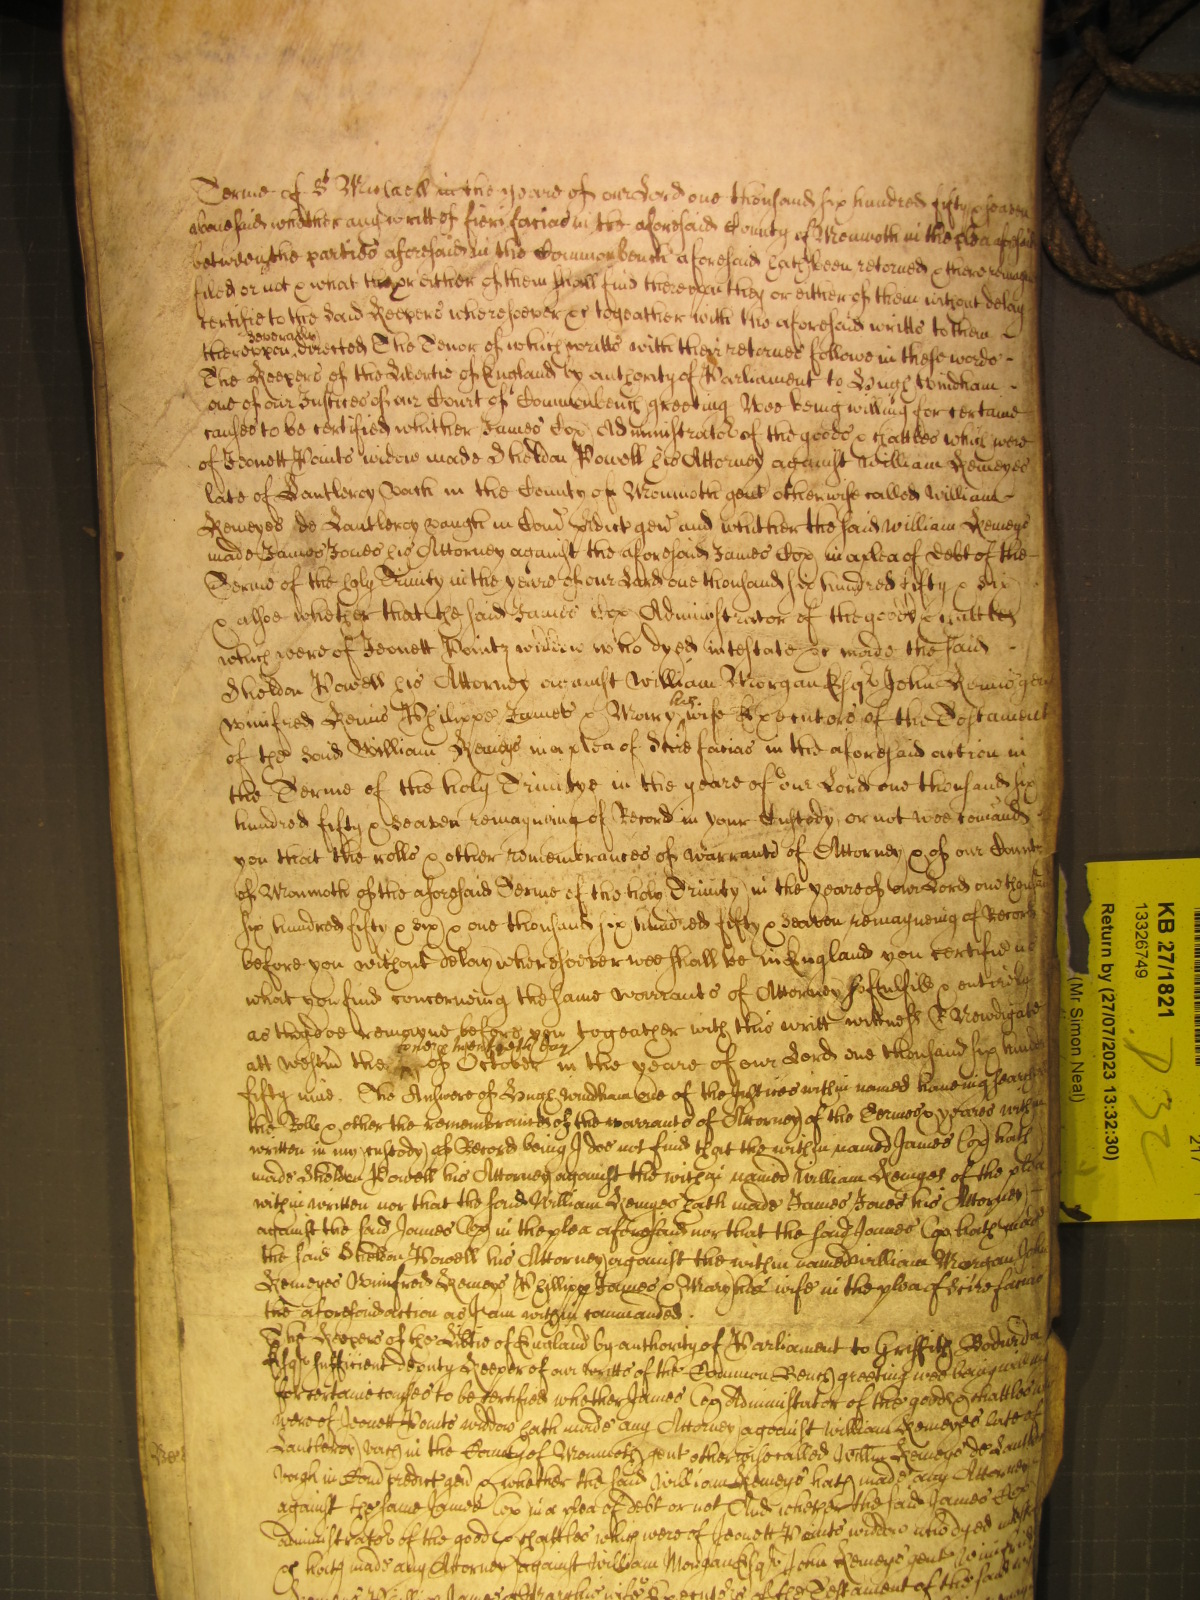 Terme of St Michaell in the yeare of our Lord one thousand six hundred fifty & seaven
abovesaid whether any writt of fieri facias in the aforesaid County of Monmoth in the plea aforesaid
betweene the parties aforesaid in the Common bench aforesaid hath been returned & there remaine
filed or not & what they or either of them shall find thereupon they or either of them without delay
certifie to the said Keepers wheresoever &c togeather with the aforesaid writts to them
severally
thereuppon directed The Tenor of which writts with their returnes follow in these words
The Keepers of the Libertie of England by authority of Parliament to Hugh Windham
one of our Justices of our Court of Common bench greeting Wee being willing for certaine
causes to be certified whither James Cox Administrator of the goods & chattles which were
of Jenett Points widow made Sheldon Powell his Attorney against William Kemeyes
late of Lantleroy Vach in the County of Monmoth gent otherwise called William
Kemeyes de Lantleroy vaugh in Com predict gen and whither the said William Kemeys
made James Jones his Attorney against the aforesaid James Cox in a plea of debt of the
Terme of the holy Trinity in the yeare of our Lord one thousand six hundred fifty & six
& alsoe whether that the said James Cox Administrator of the goods & chattles
which were of Jenett Pointz widdow who dyed intestate &c made the said
Sheldon Powell his Attorney against William Morgan Esqr John Kemis gent
his
Winifred Kemis Philippe James & Mary wife Executors of the Testament
of the said William Kemeys in a plea of Scire facias in the aforesaid action in
the Terme of the holy Trinitye in the yeare of our Lord one thousand six
hundred fifty & seaven remayneing of Record in your Custody or not wee comand
you that the rolls & other remembrances of warrants of Attorney & of our County
of Monmoth of the aforesaid Terme of the holy Trinity in the yeare of our Lord one thousand
six hundred fifty & six & one thousand six hundred fifty & seaven remayneing of Record
before you without delay wheresoever wee shall be in England you certifie us
what you find concerneing the same warrants of Attorney soe fulfill & entirely
as they doe remayne before you togeather with this writt wittness R Newdigate
one & twentyeth day
att Westm the of October in the yeare of our Lord one thousand six hundred
fifty nine. The Answere of Hugh Windham one of the Justices within named haveing searched
the Rolls & other the remembrances of the warrants of Attorney of the Termes & yeares within
written in my custody of Record being I doe not find that the within named James Cox hath
made Sheldon Powell his Attorney against the within named William Kemeyes of the plea
within written nor that the said William Kemeyes hath made James Jones his Attorney
against the said James Cox in the plea aforesaid nor that the said James Cox hath made
the said Sheldon Powell his Attorney against the within named William Morgan John
Kemeyes Winifred Kemeys Phillipp James & Mary his wife in the plea of scire facias
the aforesaid action as I am within commanded.
The Keepers of the Libtie of England by authority of Parliament to Griffith Bodwrda
Esqr sufficient deputy Keeper of our writts of the Common Bench greeting wee being willing
for certaine causes to be certified whether James Cox Administrator of the goods & chattles wch
were of Jenett Points widdow hath made any Attorney against William Kemeyes late of
Lantleroy vach in the County of Monmoth gent otherwise called Willm Kemeys de Lantleroy
vaugh in Com predict gen & whether the said William Kemeys hath made any Attorney
against the same James Cox in a plea of debt or not And whether the said James Cox
administrator of the goods & chattles which were of Jenett Points widdow who dyed intestate
&c hath made any Attorney against William Morgan Esqr John Kemeys gent Winifred
Kemeys Phillipp James & Mary his wife Executors of the Testament of the said
KB 27/1821
13326749
Return by (27/07/2023 13:32:30)
(Mr Simon Neal)
D32
217